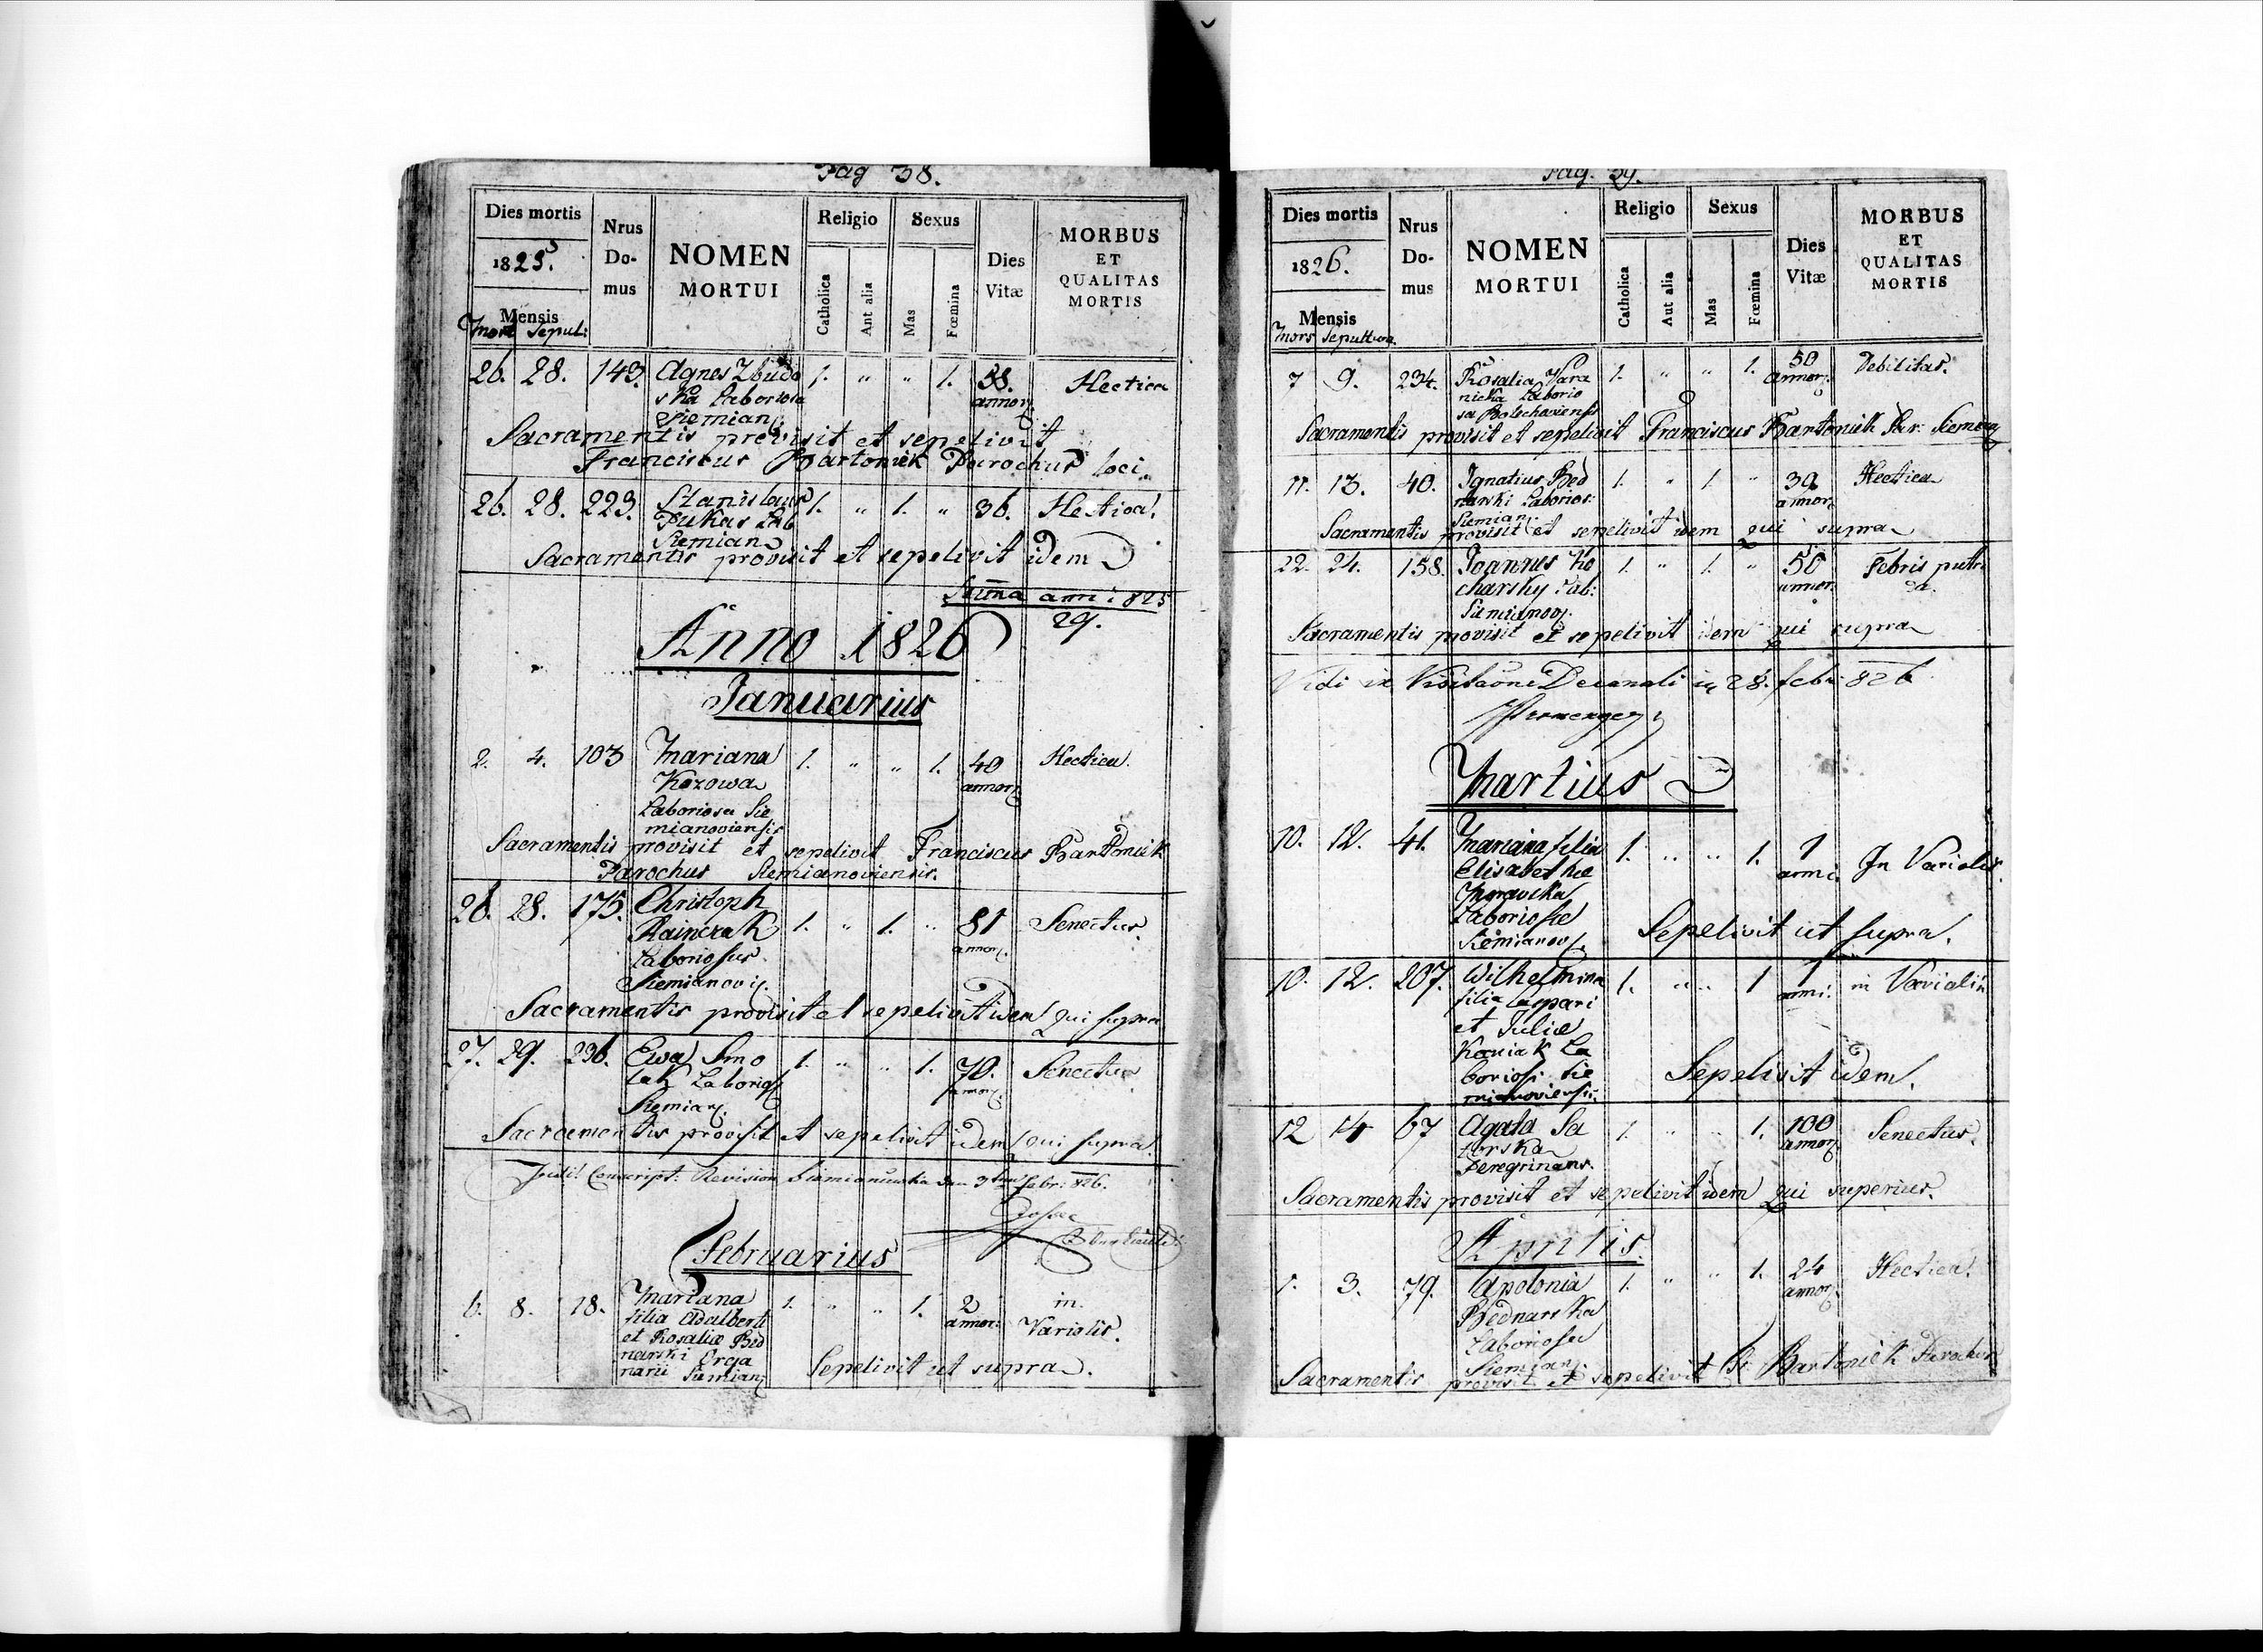 Pag 38.
Dies mortis
1825.
Mensis
Mors Sepul:
Nrus
Do-
mus
NOMEN
MORTUI
Religio
Catholica
Aut alia
Sexus
Mas
Fœmina
Dies
Vitæ
MORBUS
ET
QUALITAS
MORTIS
26. 28. 143. Agnes 1. " " 1. 58. Hectica
ska Laboriosa annor
Siemian
Sacramentis provisit et sepelivit
Franciscus Bartoniek Parochus loci
26. 28. 223. Stanislaus 1. " 1. " 36. Hectica.
Pukas Lab
Siemian
Sacramentis provisit et sepelivit idem
Summa anni 825
29.
Anno 1826
Januarius
2. 4. 103 Mariana 1. " " 1. 40 Hectica.
Kozowa annor
Laboriosa Sie
mianoviensis
Sacramentis provisit et sepelivit Franciscus Bartoniek
Parochus Siemianoviensis.
26. 28. 175. Christoph 1. " 1. " 81 Senectus
Rainczak annor
Laboriosus
Siemianovi
Sacramentis provisit et sepelivit idem qui supra
27. 29. 236. Ewa Smo 1. " " 1. 70. Senectus
lak Laborios annor
Siemian
Sacramentis provisit et sepelivit idem qui supra.
Conscript: Revision 3ten Febr: 826.
Februarius
6. 8. 18. Mariana 1. " " 1. 2 in
filia Adalberti annor: Variolis.
et Rosaliæ Bed
narski Orga
narii Siemian
Sepelivit ut supra.
Pag. 39.
Dies mortis
1826.
Mensis
Mors Sepultura
Nrus
Do-
mus
NOMEN
MORTUI
Religio
Catholica
Aut alia
Sexus
Mas
Fœmina
Dies
Vitæ
MORBUS
ET
QUALITAS
MORTIS
7 9. 234. Rosalia 1. " " 1. 50 Debilitas.
nicka Laborio annor:
sa
Sacramentis provisit et sepelivit Franciscus Bartoniek Par: Siemian
11. 13. 40. Ignatius Bed 1. " 1. " 39 Hectica
narski Laborios: annor
Siemian
Sacramentis provisit et sepelivit idem qui supra
22. 24. 158. Joannus Ko 1. " 1. " 50 Febris putri
charsky Lab: annor: da.
Siemianov
Sacramentis provisit et sepelivit idem qui supra
Vidi in Visitaone Decanali 28. febr: 826
Martius
10. 12. 41. Mariana filia 1. " " 1. 1 In Variolis.
Elisabethæ anni
Morawska
Laboriosæ
Siemianov
Sepelivit ut supra.
10. 12. 207. Wilhelmina 1. " " 1 1 in Variolis
filia Caspari anni:
et Juliæ
Koniak La
boriosi Sie
mianoviensis
Sepelivit idem.
12 14 67 Agata Sa 1. " " 1. 100 Senectus.
torska annor
Peregrinans.
Sacramentis provisit et sepelivit idem qui superius.
Aprilis.
1. 3. 79. Apolonia 1. " " 1. 24 Hectica.
Bednarska annor
Laboriosa
Siemian
Sacramentis provisit et sepelivit Fr Bartoniek Parochus